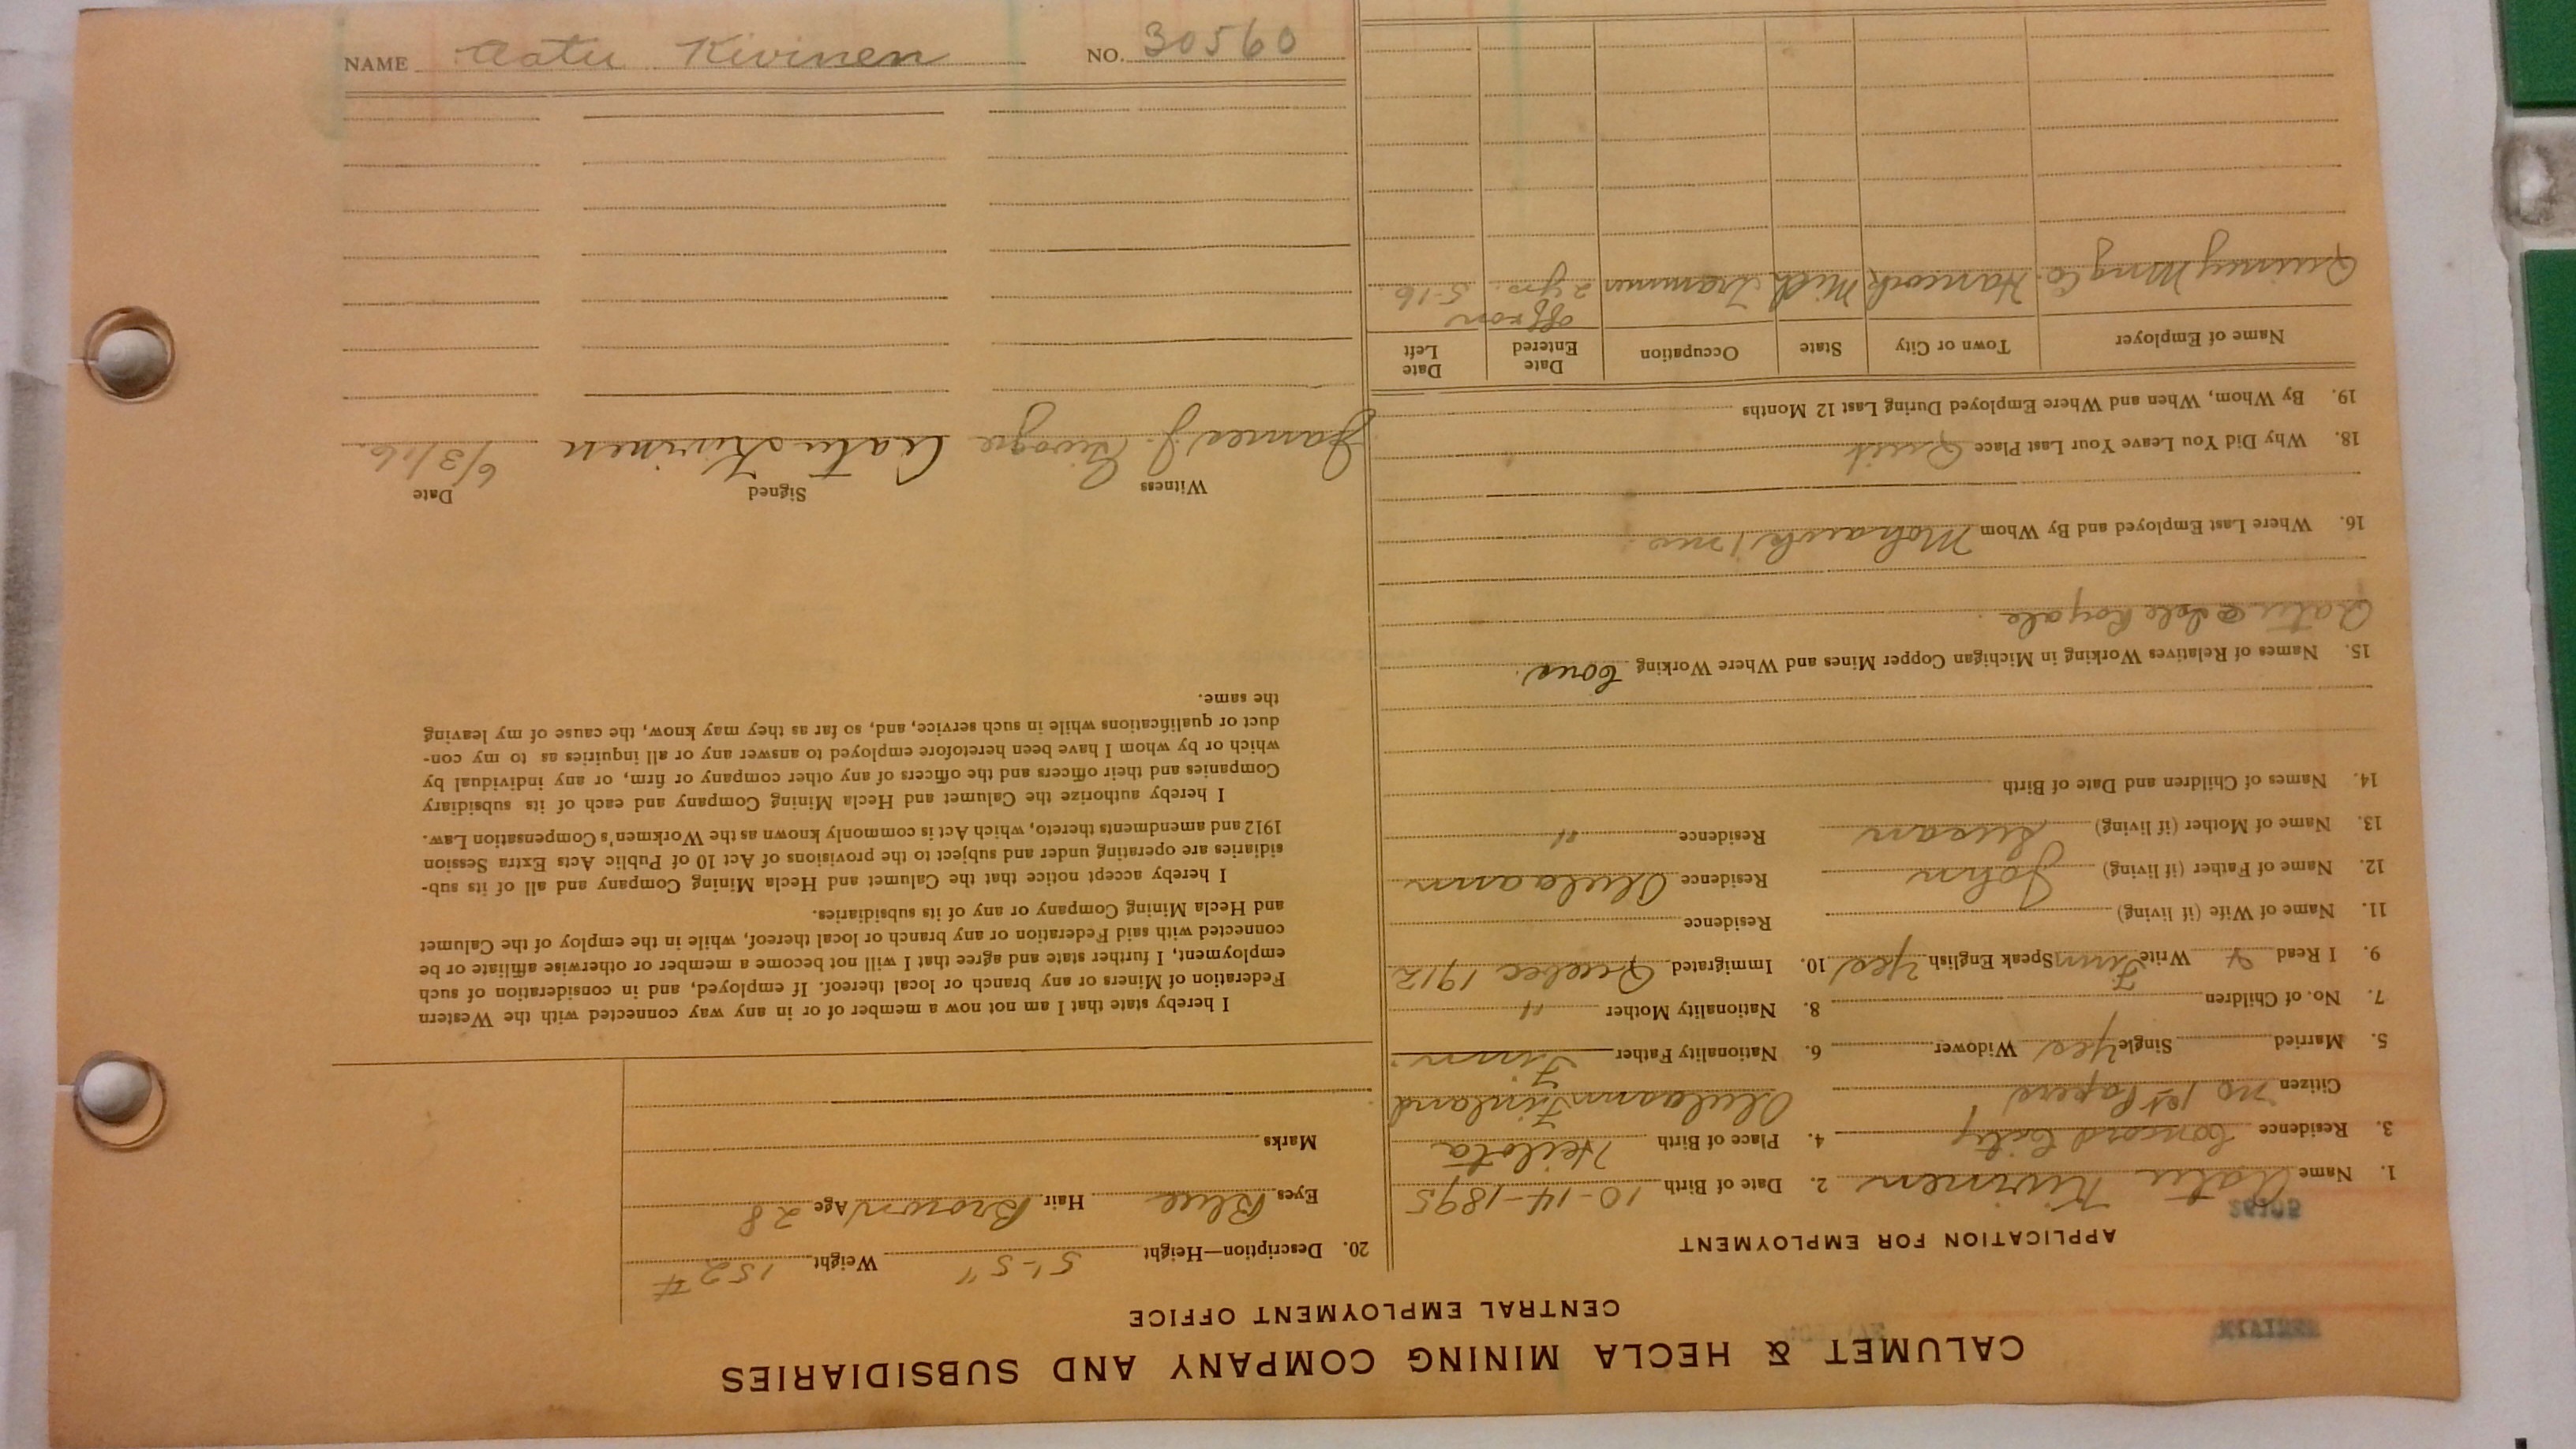 NAME Aatu Kivinen NO. 30560
CALUMET & HECLA MINING COMPANY AND SUBSIDIARIES
CENTRAL EMPLOYMENT OFFICE
APPLICATION FOR EMPLOYMENT
1. Name Aatu Kivinen 2. Date of Birth 10-14-1895
3. Residence Concord City 4. Place of Birth Heilota
Citizen no 1st Papers Oulaann Finland
5. Married Single Yes Widower 6. Nationality Father Finn
7. No. of Children 8. Nationality Mother "
9. I Read & Write Finn Speak English Yes 10. Immigrated Quebec 1912
11. Name of Wife (if living) Residence
12. Name of Father (if living) John Residence Oulaann
13. Name of Mother (if living) Susan Residence "
14. Names of Children and Date of Birth
15. Names of Relatives Working in Michigan Copper Mines and Where Working Cous.
@ Isle Royale
16. Where Last Employed and By Whom Mohawk 1 mo.
18. Why Did You Leave Your Last Place Quit
19. By Whom, When and Where Employed During Last 12 Months
Name of Employer Town or City State Occupation Date Entered Date Left
off & on
Quincy Mng Co. Hancock Mich Trammer 2 yrs. 5-16
20. Description—Height 5'-5" Weight 152 #
Eyes Blue Hair Brown Age 28
Marks
I hereby state that I am not now a member of or in any way connected with the Western
Federation of Miners or any branch or local thereof. If employed, and in consideration of such
employment, I further state and agree that I will not become a member or otherwise affiliate or be
connected with said Federation or any branch or local thereof, while in the employ of the Calumet
and Hecla Mining Company or any of its subsidiaries.
I hereby accept notice that the Calumet and Hecla Mining Company and all of its sub-
sidiaries are operating under and subject to the provisions of Act 10 of Public Acts Extra Session
1912 and amendments thereto, which Act is commonly known as the Workmen's Compensation Law.
I hereby authorize the Calumet and Hecla Mining Company and each of its subsidiary
Companies and their officers and the officers of any other company or firm, or any individual by
which or by whom I have been heretofore employed to answer any or all inquiries as to my con-
duct or qualifications while in such service, and, so far as they may know, the cause of my leaving
the same.
Witness Signed Date
James J. Aatu Kivinen 6/3/16